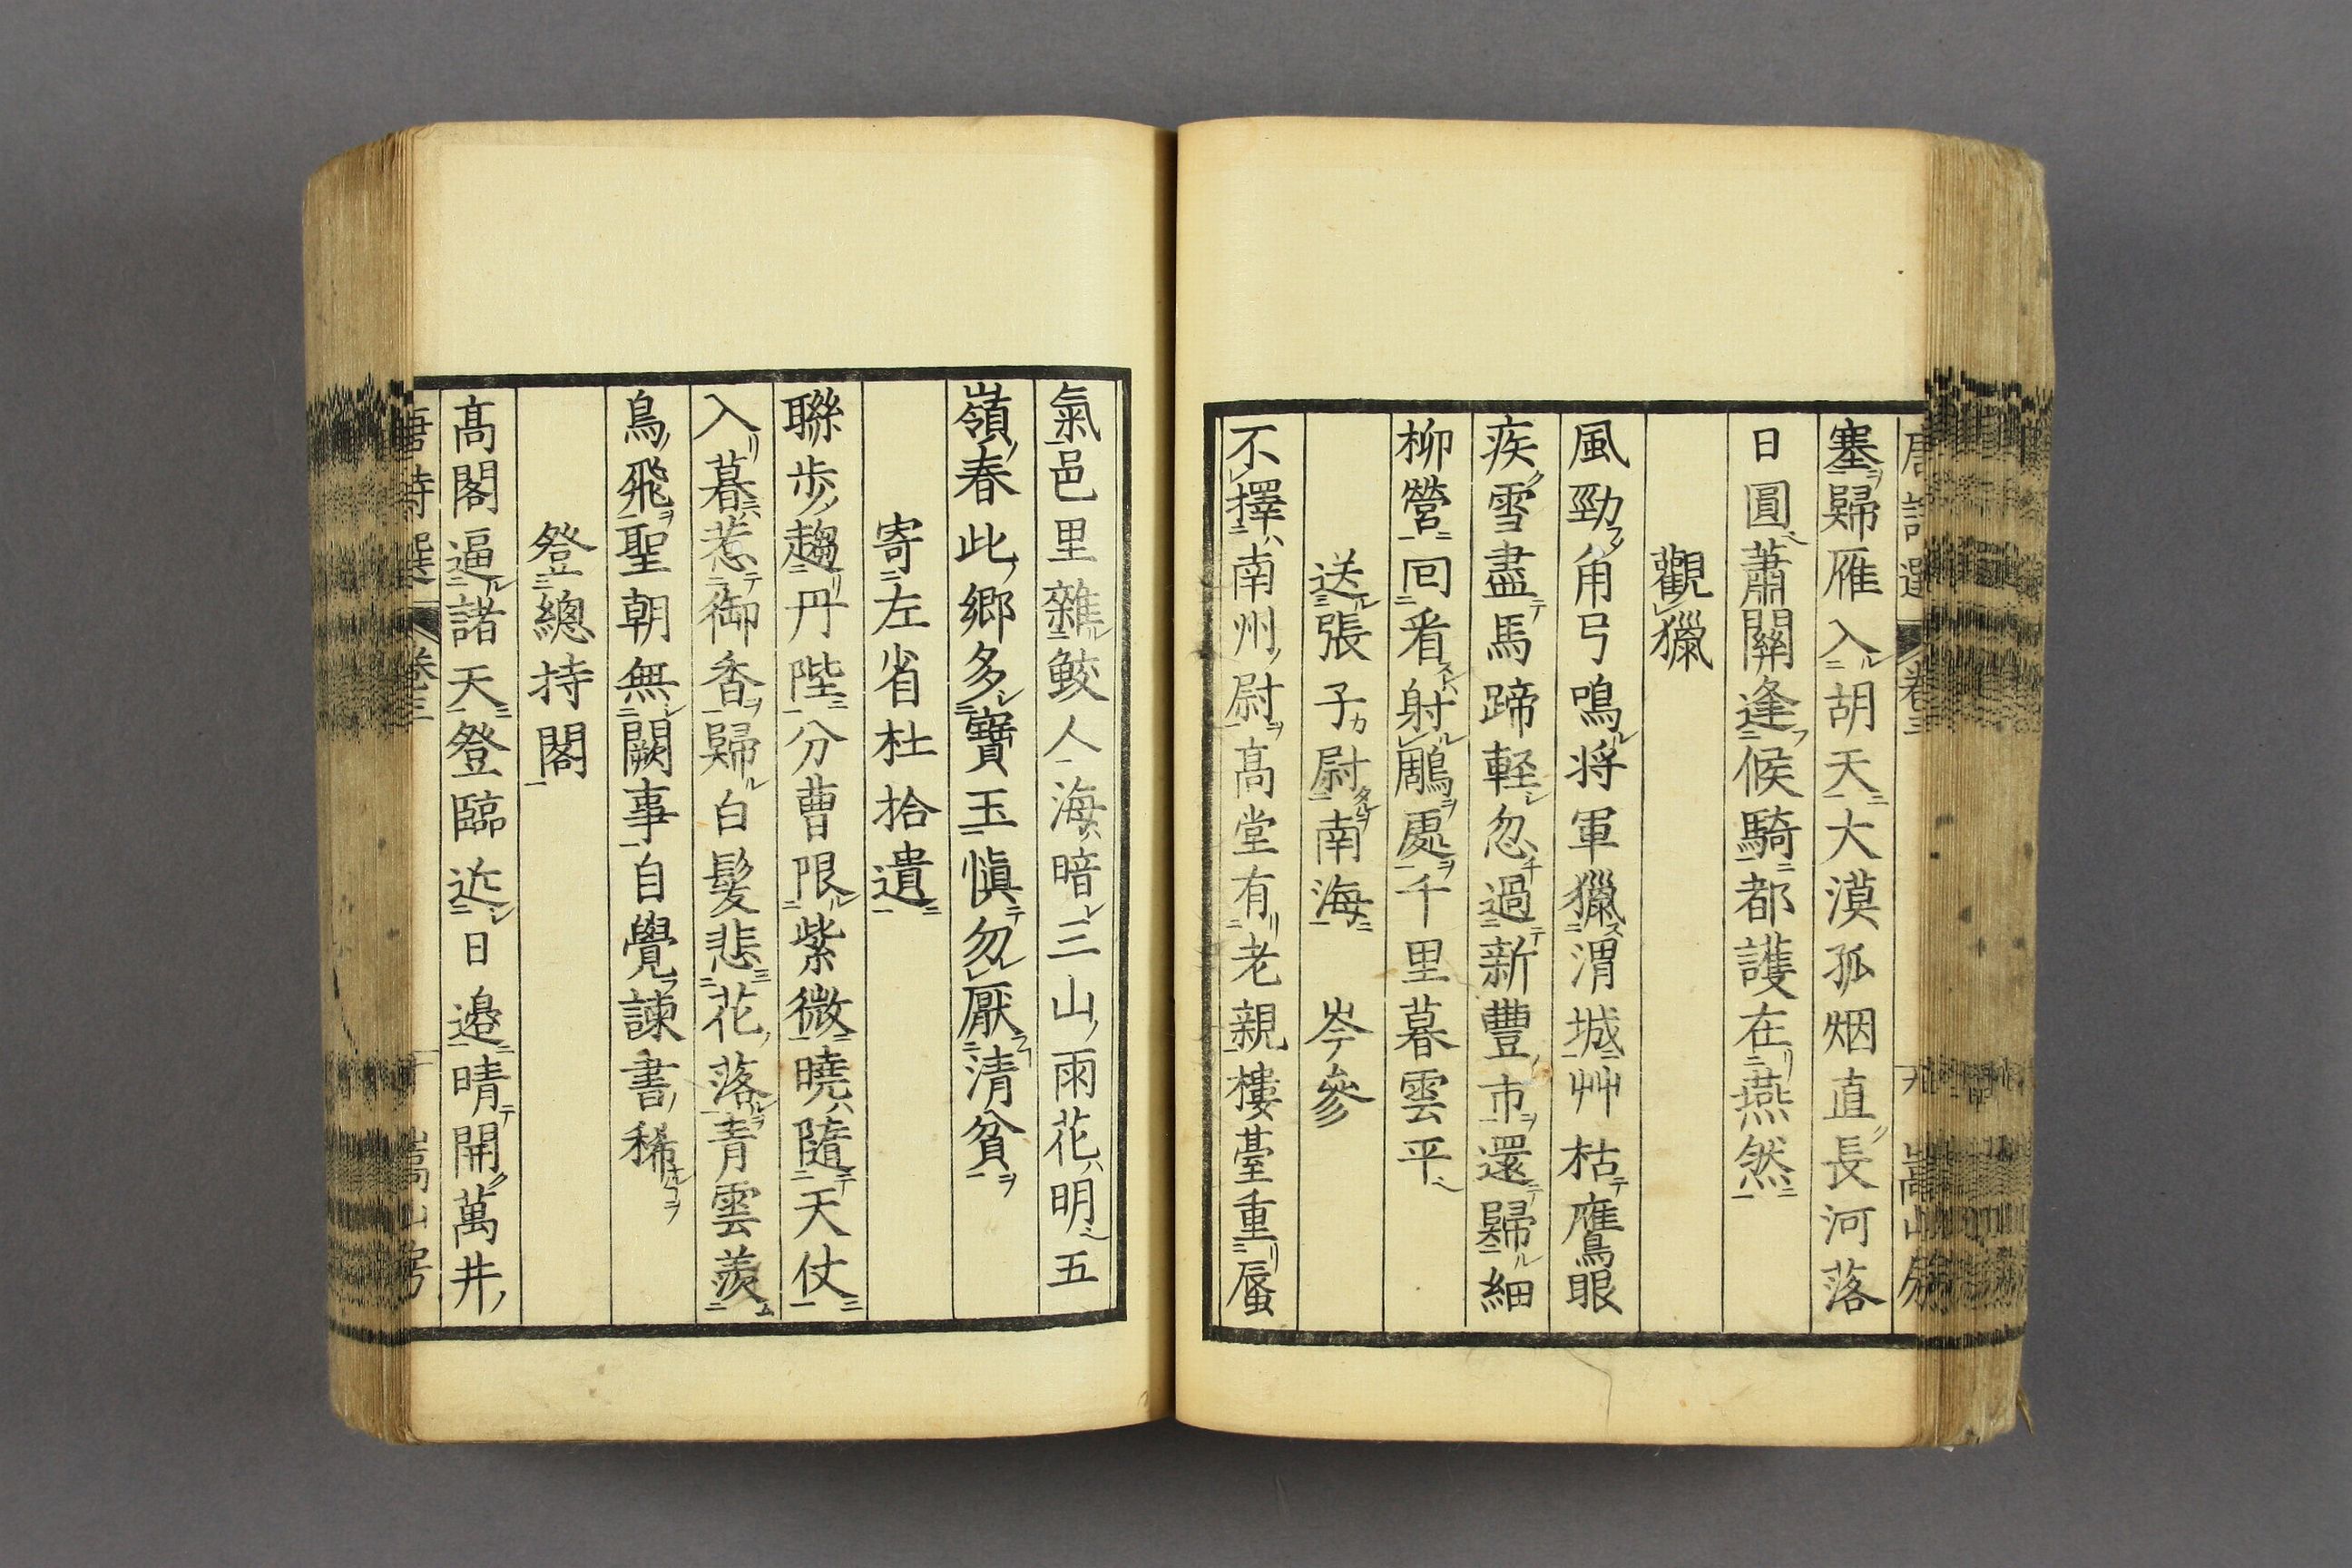 唐詩選 卷三 九 嵩山房
塞歸雁入胡天大漠孤烟直長河落
日圓蕭關逢候騎都護在燕然
觀獵
風勁角弓鳴将軍獵渭城艸枯鷹眼
疾雪盡馬蹄軽忽過新豐市還歸細
柳營回看射鵰處千里暮雲平
送張子尉南海 岑參
不擇南州尉高堂有老親樓臺重蜃
氣邑里雜鮫人海暗三山雨花明五
嶺春此郷多寶玉愼勿厭清貧
寄左省杜拾遺
聯歩趨丹陛分曹限紫微曉隨天仗
入暮惹御香歸白髮悲花落青雲羨
鳥飛聖朝無闕事自覺諫書稀
登總持閣
髙閣逼諸天登臨近日邉晴開萬井
唐詩選 卷三 十 嵩山房